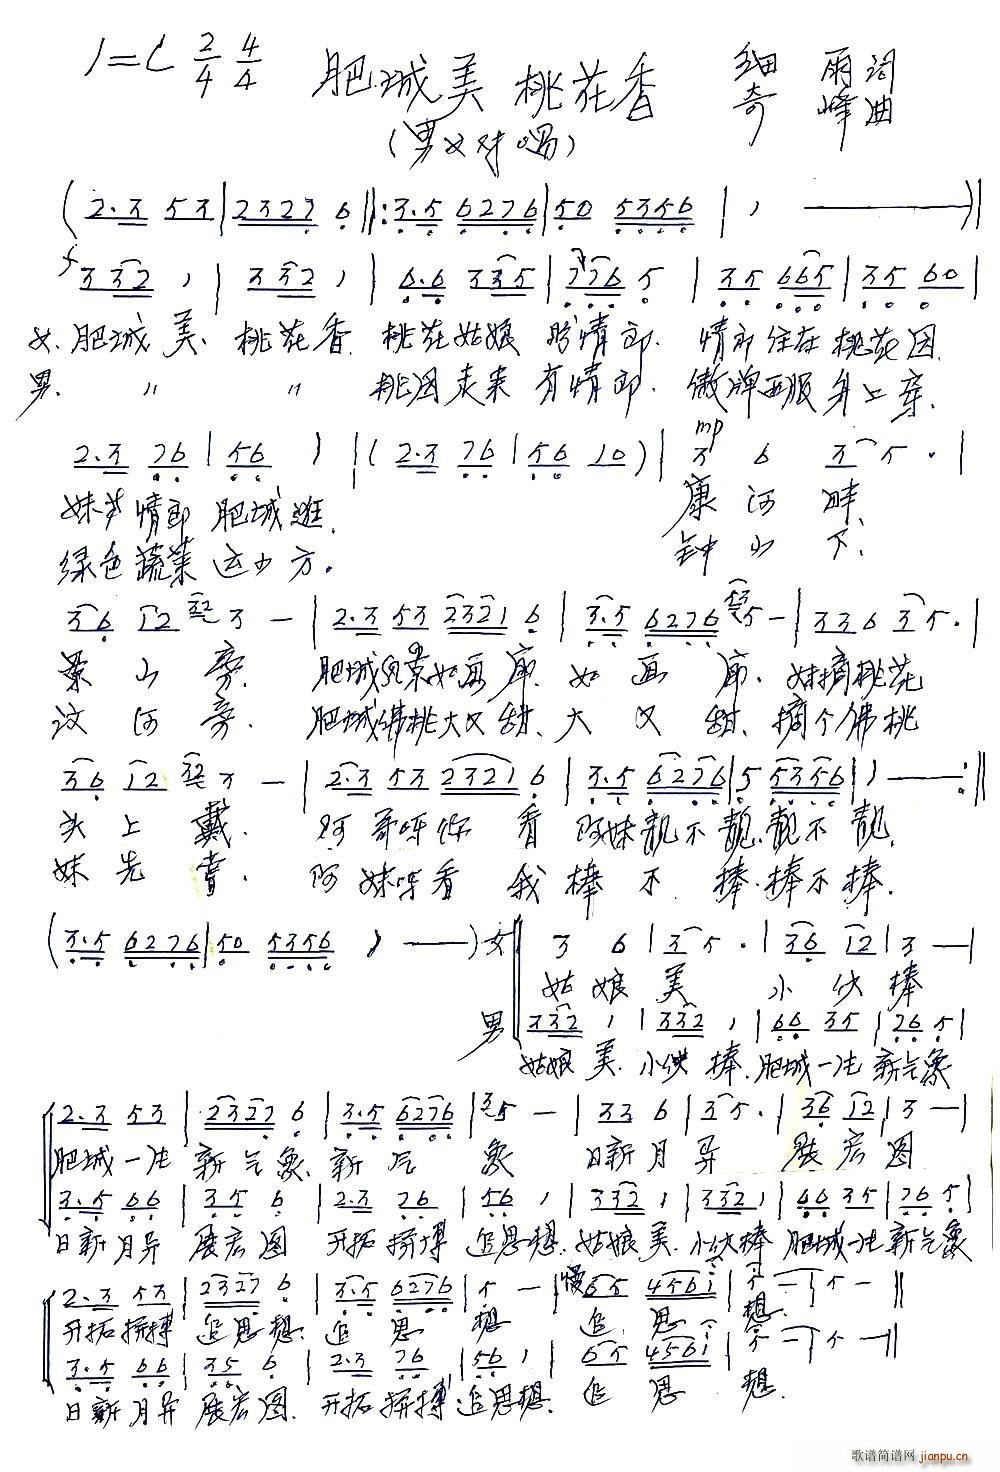 1=C 2/4 4/4 肥城美 桃花香 细雨词
(男女对唱) 奇峰曲
(2·3 53|2327 6‖:3·5 6276|50 5356|1 ——)|
f 3 32 1|3 32 1|6·6 335|776 5|35 665|35 60|
女. 肥城美. 桃花香. 桃花姑娘 情郎. 情郎住在桃花园.
男. 〃 〃 桃园走来有情郎. 牌西服身上穿.
2·3 76|56 1|(2·3 76|56 10)|mp 3 6 3 5 ·|
妹 情郎肥城逛. 康河畔.
绿色蔬菜运 方. 钟山下.
36 12 32 3 —|2·3 53 2321 6|3·5 6276 5 —|336 35·|
景山旁. 肥城风景如画廊. 如画廊. 妹摘桃花
汶河旁. 肥城佛桃大又甜、大又甜、摘个佛桃
36 12 32 3 —|2·3 53 2321 6|3·5 6276|5 5356|1 —:‖
头上戴. 阿哥呀你看阿妹靓不靓.靓不靓.
妹先尝. 阿妹呀看我棒不棒.棒不棒.
(3·5 6276|50 5356 1 —)女 3 6|3 5·|36 12|3 —|
姑娘美 小伙棒
男 332 1|332 1|66 35|76 5|
姑娘美. 小伙棒. 肥城一派新气象
2·3 53|2327 6|3·5 6276|5 —|33 6|35·|36 12|3 —|
肥城一派新气象. 新气象 日新月异 展宏图
3·5 66|35 6|2·3 76|56 1|332 1|332 1|66 35|76 5|
日新月异展宏图 开拓拼搏追思想. 姑娘美. 小伙棒 肥城一派新气象
2·3 53|2327 6|3·5 6276|5 —|慢65 4561|5 —|5 —‖
开拓拼搏追思想. 追思想 追思想.
3·5 66|35 6|2·3 76|56 1|65 4561|5 —|5 —‖
日新月异展宏图. 开拓拼搏追思想. 追思想.
歌谱简谱网 jianpu.cn